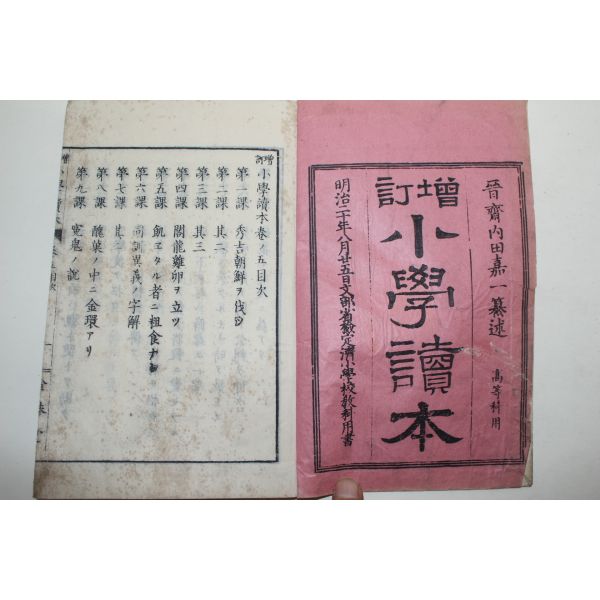 晉齋內田嘉一纂述
高等科用
增訂
小學讀本
明治二十年八月廿五日文部省檢定濟小學校敎科用書
增訂小學讀本卷ノ五目次
第一課 秀吉朝鮮ヲ伐ツ
第二課 其二
第三課 其三
第四課 關龍雞卵ヲ立ツ
第五課 飢エタル者ニ粗食ナシ
第六課 同訓異義ノ字解
第七課
第八課 醜菓ノ中ニ金環アリ
第九課 寃鬼ノ說